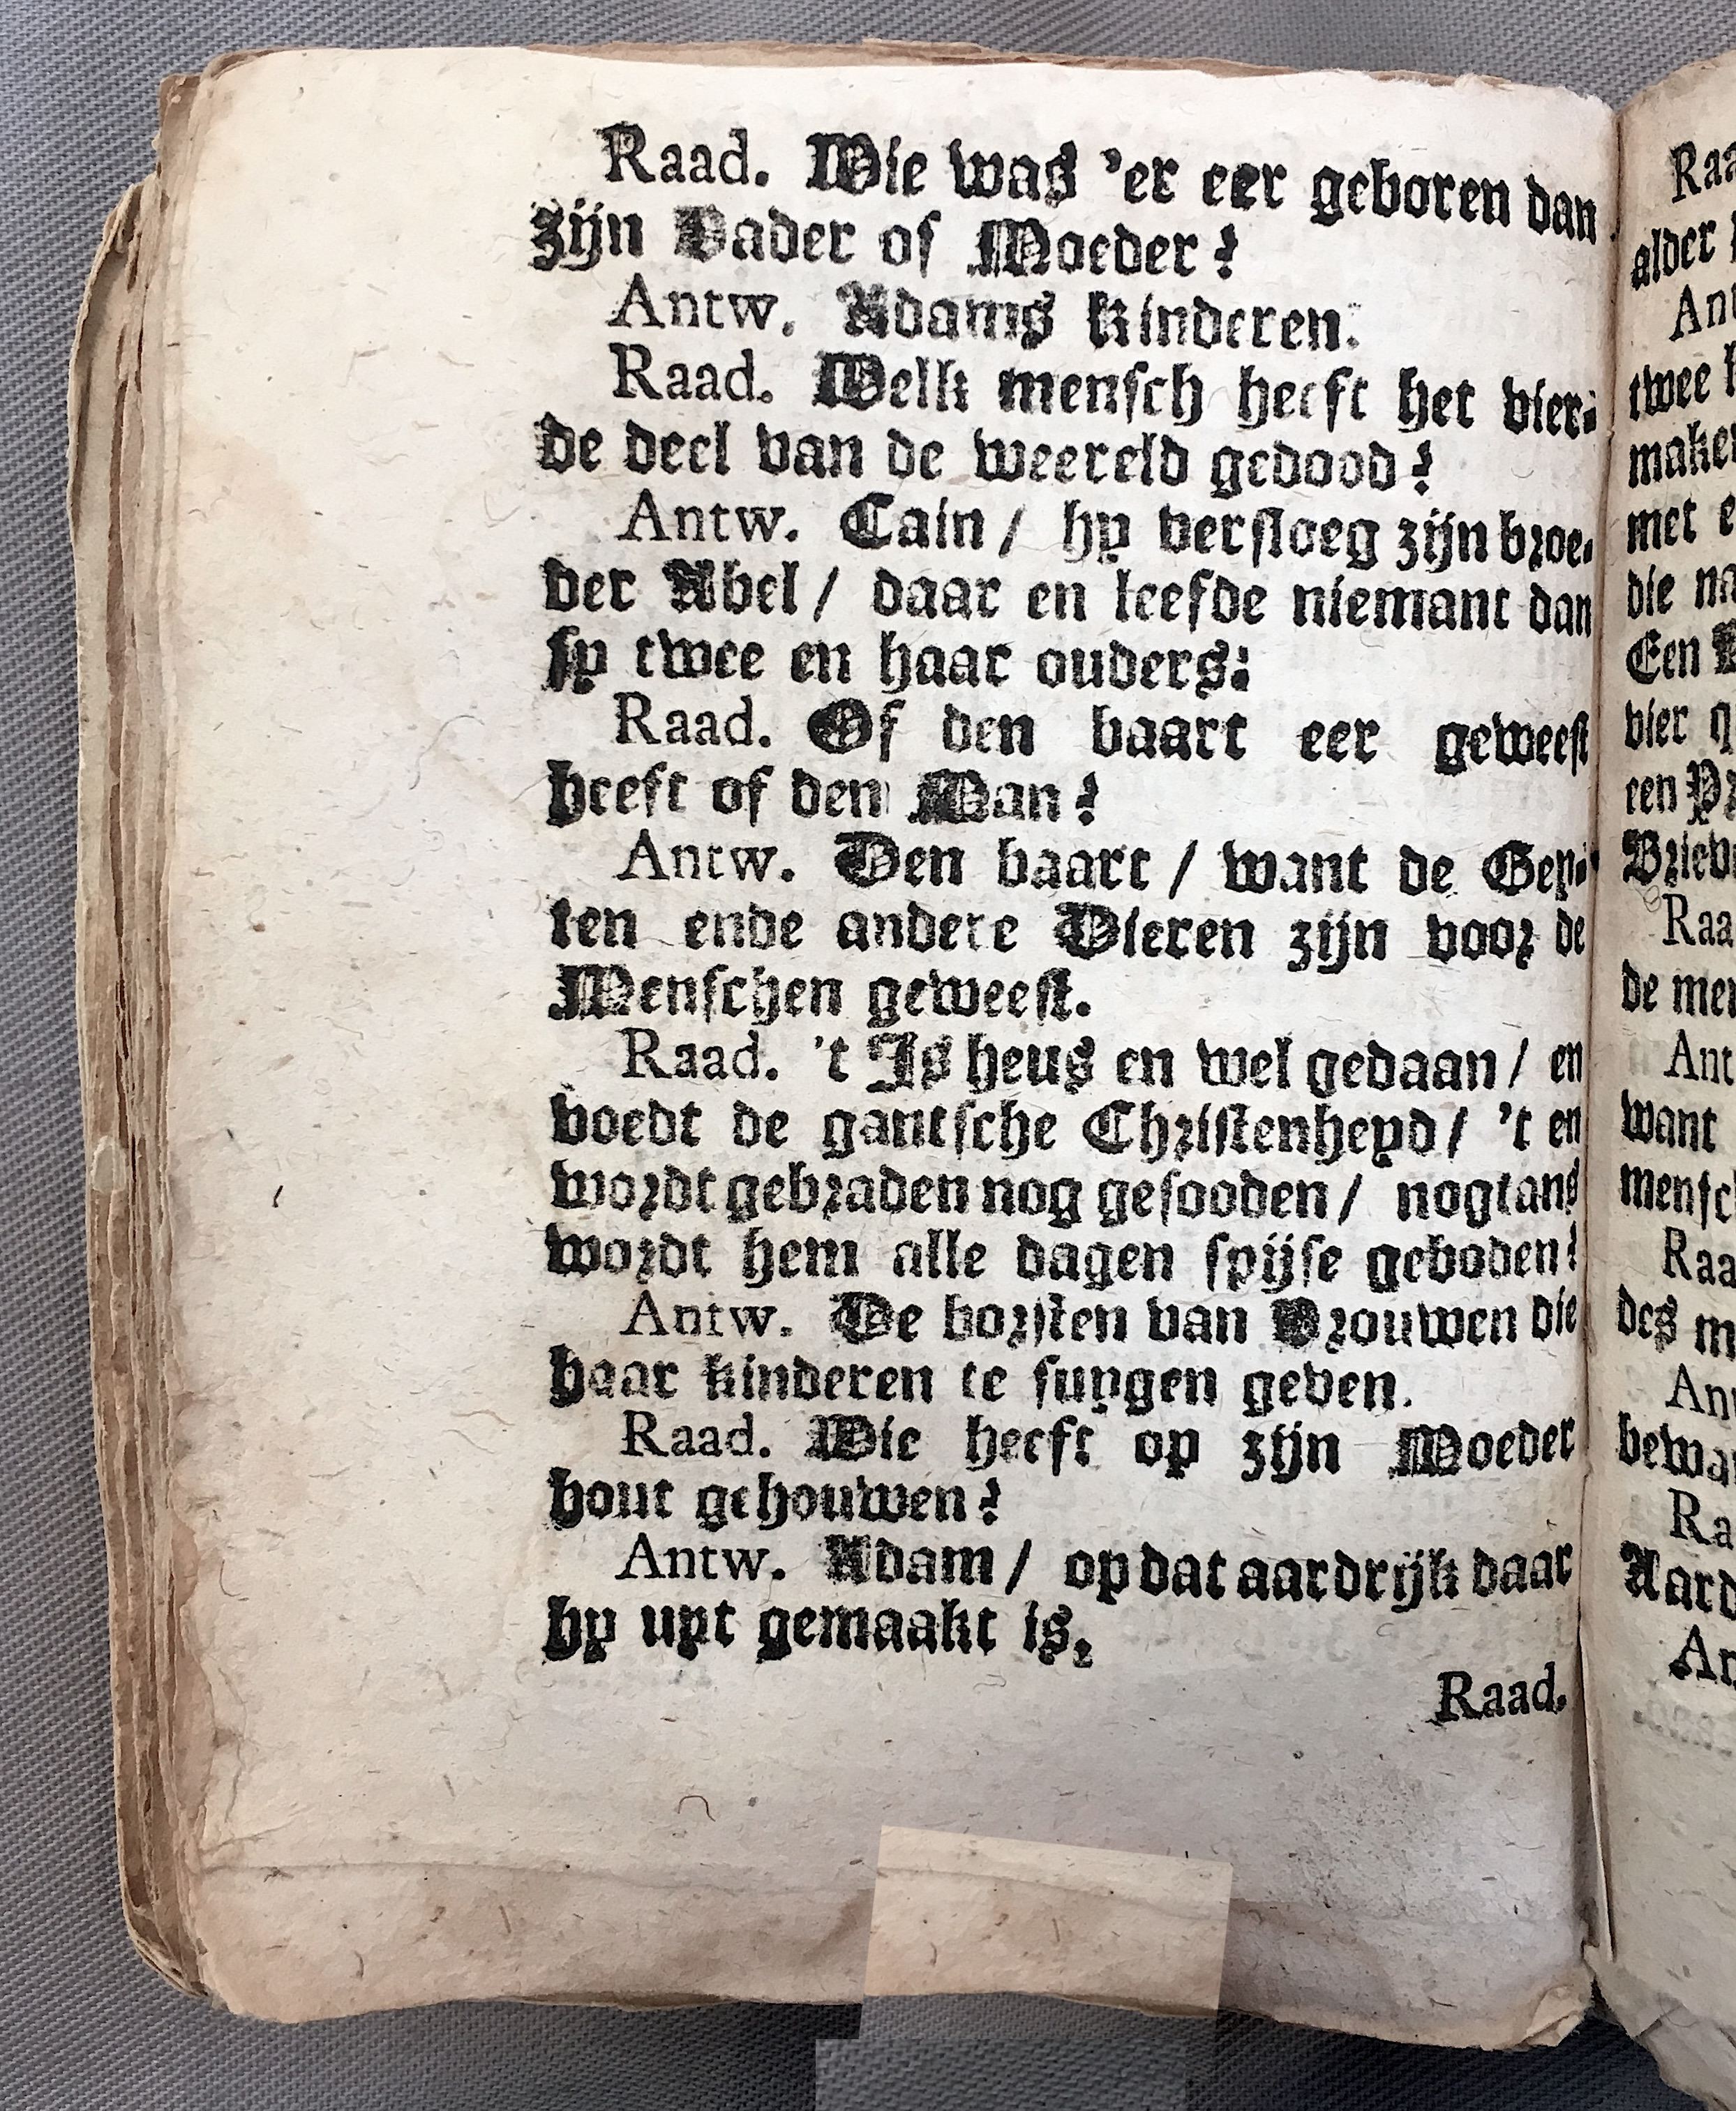 Raad. Wie was 'er eer geboren dan
zijn Vader of Moeder?
Antw. Adams kinderen.
Raad. Welk mensch heeft het vier-
de deel van de weereld gedood?
Antw. Cain / hy versloeg zijn broe-
der Abel / daar en leefde niemant dan
sy twee en haar ouders:
Raad. Of den baart eer geweest
heeft of den Man?
Antw. Den baart / want de Gey-
ten ende andere Dieren zijn voor de
Menschen geweest.
Raad. 't Is heus en wel gedaan / en
voedt de gantsche Christenheyd / 't en
wordt gebraden nog gesooden / nogtans
wordt hem alle dagen spijse geboden?
Antw. De borsten van Vrouwen die
haar kinderen te suygen geven.
Raad. Wie heeft op zijn Moeder
hout gehouwen?
Antw. Adam / op dat aardrijk daar
hy uyt gemaakt is.
Raad.
Raa
alder
Ant
twee
make
met e
die na
Een
vier
een Pr
Brieve
Raa
de men
Ant
want
mensch
Raa
des m
An
bewa
Ra
Aard
An